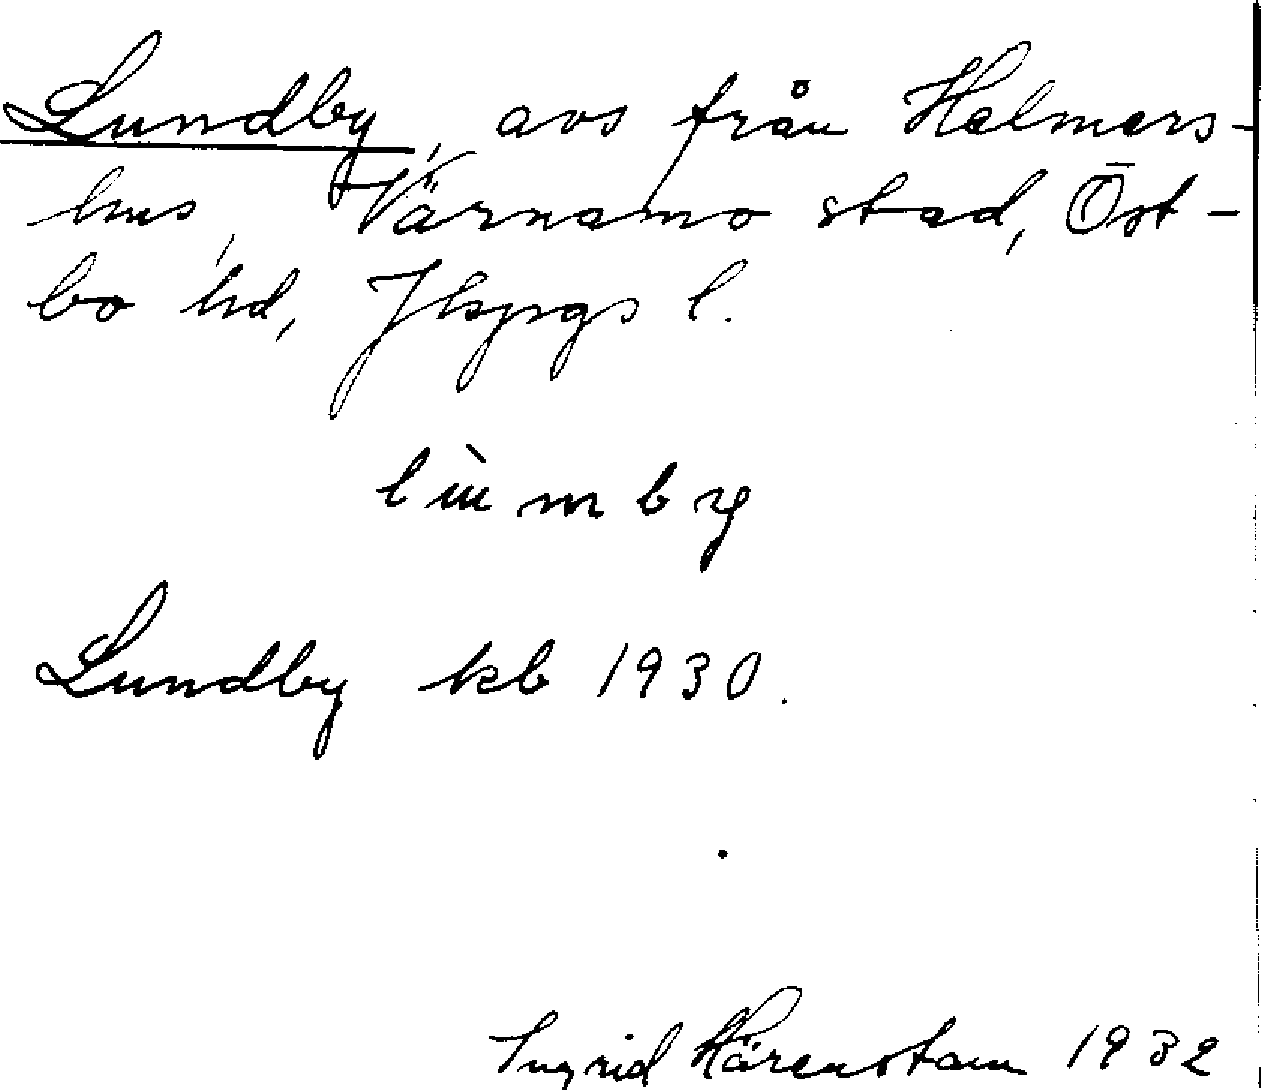 Lundby, avs från Helmers-
hus, Värnamo stad, Öst-
bo hd, Jkpgs l.
lùmby
Lundby kb 1930.
Ingrid Härenstam 1932